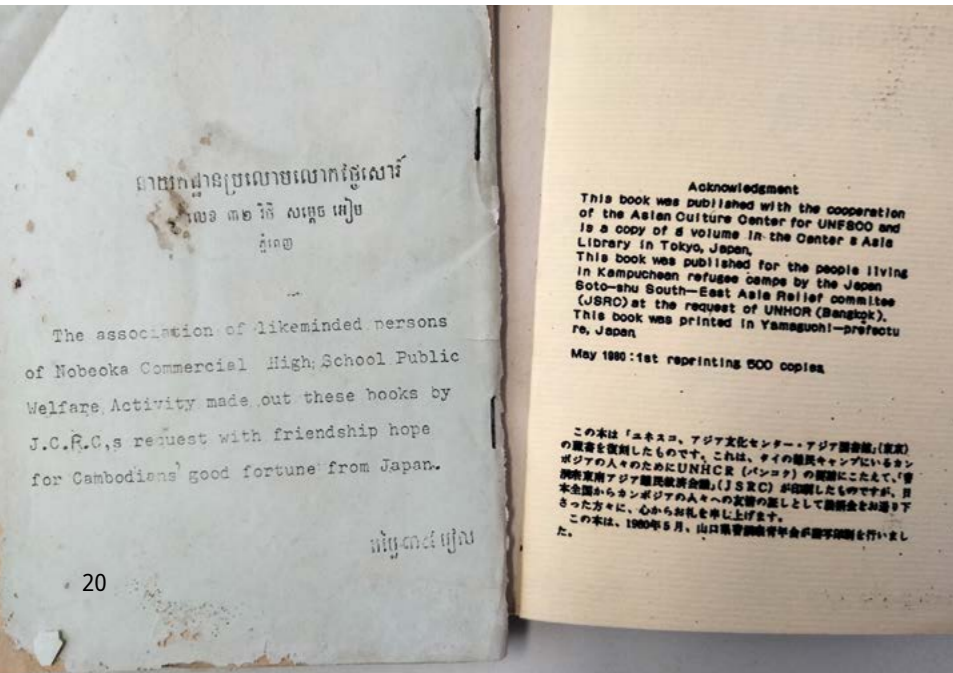 ប្រលោមលោកថ្ងៃសៅរ៍
លេខ ៣២ វិថី សម្ដេច អៀម
ភ្នំពេញ
The association of likeminded persons
of Nobeoka Commercial High School Public
Welfare Activity made out these books by
J.C.R.C,s request with friendship hope
for Cambodians' good fortune from Japan.
រៀល
20
Acknowledgment
This book was published with the cooperation
of the Asian Culture Center for UNESCO and
is a copy of a volume in the Center s Asia
Library in Tokyo, Japan,
This book was published for the people living
in Kampuchean refugee camps by the Japan
Soto-shu South-East Asia Relief commitee
(JSRC) at the request of UNHCR (Bangkok).
This book was printed in Yamaguchi-prefectu
re, Japan
May 1980 : 1st reprinting 500 copies
この本は「ユネスコ、アジア文化センター・アジア図書館」(東京)
の蔵書を復刻したものです。これは、タイの難民キャンプにいるカン
ボジアの人々のためにUNHCR (バンコク) の要請にこたえて、「曹
洞宗東南アジア難民救済会議」(JSRC) が印刷したものですが、日
本全国からカンボジアの人々への友情の証しとして募金をお送り下
さった方々に、心からお礼を申し上げます。
この本は、1980年5月、山口県曹洞宗青年会が印刷を行いまし
た。